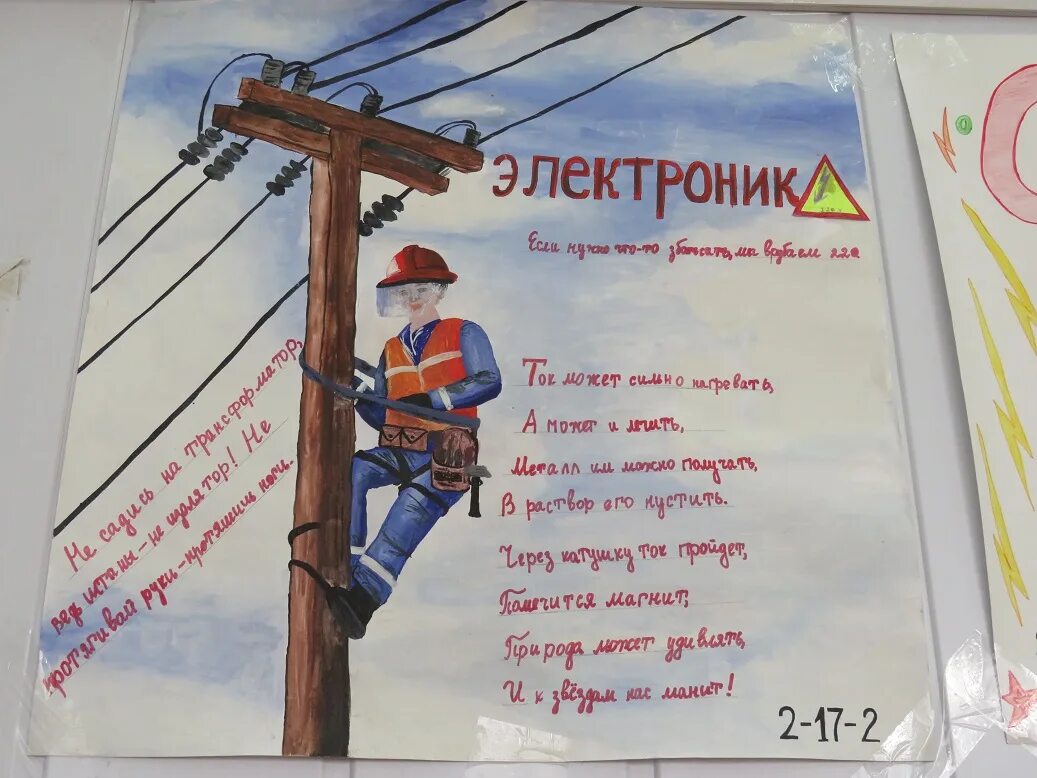 ЭЛЕКТРОНИК
Если нужно что-то мы врубаем 220
Не садись на трансформатор,
ведь штаны - не изолятор! Не
протягивай руки - протянешь ноги.
Ток может сильно нагревать,
А может и лечить,
Металл им можно получать,
В раствор его пустить.
Через катушку ток пройдет,
Получится магнит,
Природа может удивлять,
И к звёздам нас манит!
2-17-2